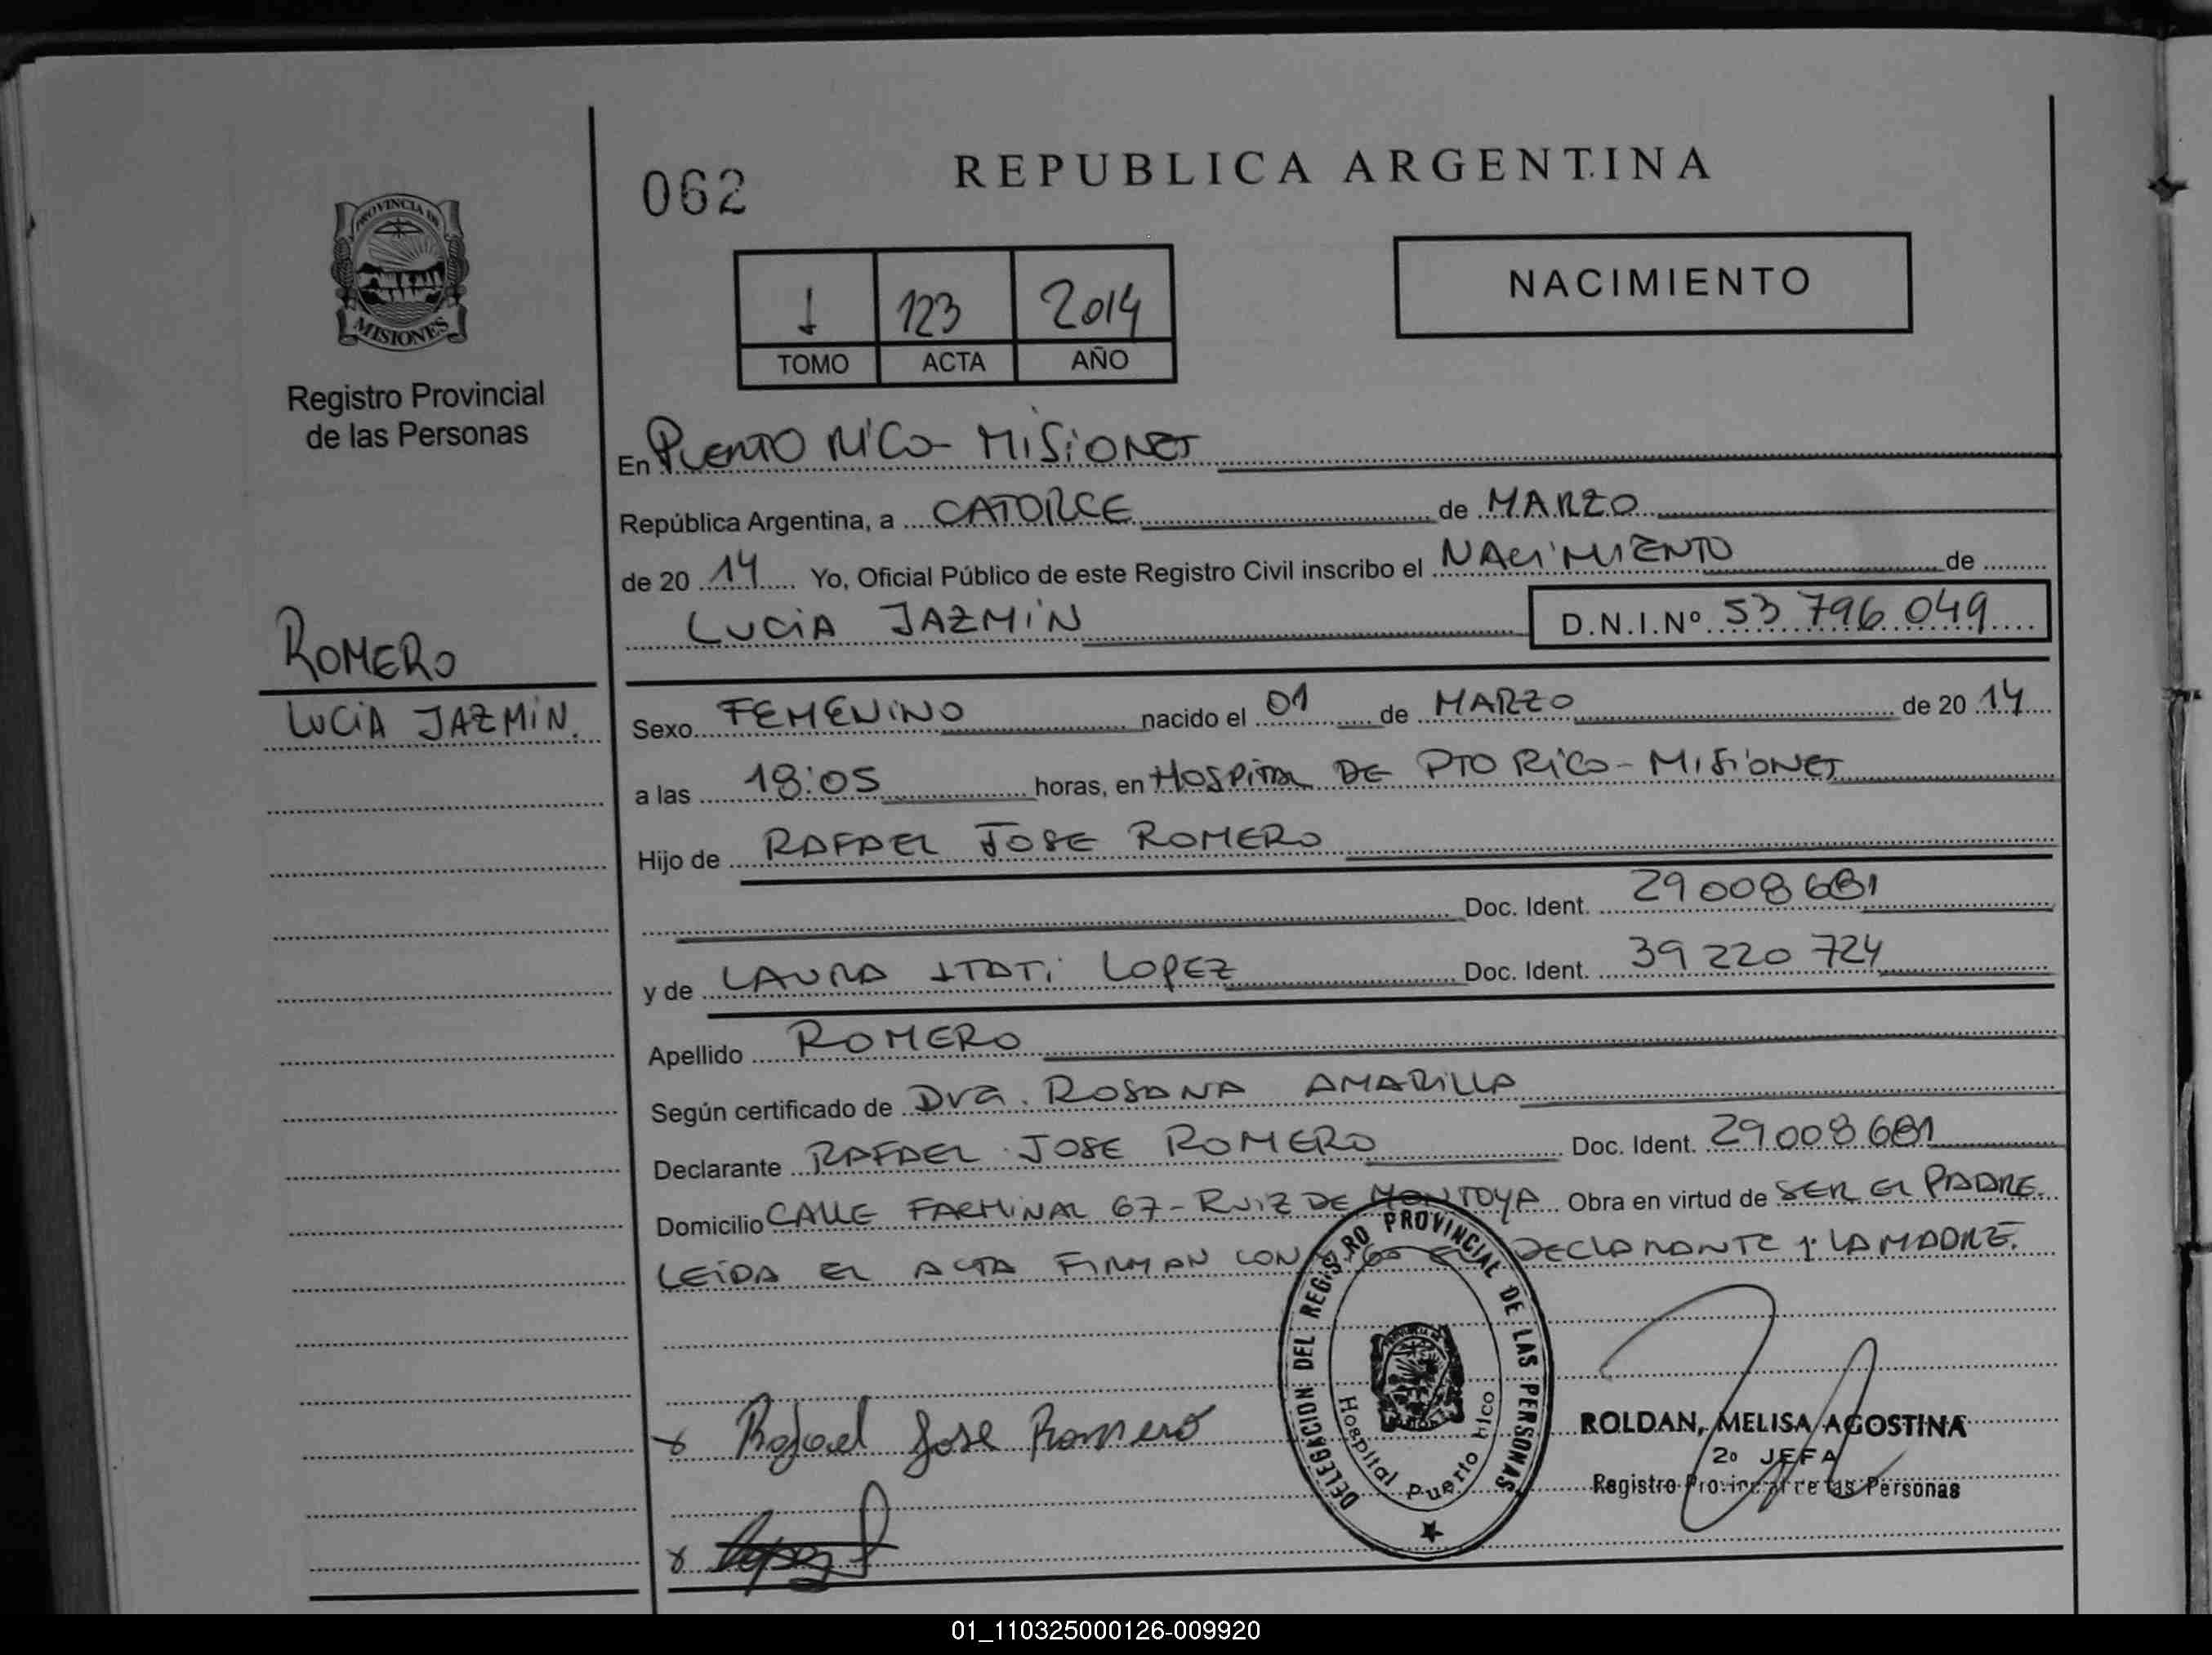 REPUBLICA ARGENTINA
062
PROVINCIA DE
MISIONES
Registro Provincial
de las Personas
1 123 2014
TOMO ACTA AÑO
NACIMIENTO
En PUERTO RICO - MISIONES
República Argentina, a CATORCE de MARZO
de 20 14 Yo, Oficial Público de este Registro Civil inscribo el NACIMIENTO de
LUCIA JAZMIN D.N.I.Nº 53 796 049
ROMERO
LUCIA JAZMIN.
Sexo FEMENINO nacido el 01 de MARZO de 20 14
a las 18:05 horas, en HOSPITAL DE PTO RICO - MISIONES
Hijo de RAFAEL JOSE ROMERO
Doc. Ident. 29 008 681
y de LAURA ITATI LOPEZ Doc. Ident. 39 220 724
Apellido ROMERO
Según certificado de Dra. ROSANA AMARILLA
Declarante RAFAEL JOSE ROMERO Doc. Ident. 29 008 681
Domicilio CALLE FARHINAL 67 - RUIZ DE MONTOYA Obra en virtud de SER EL PADRE.
LEIDA EL ACTA FIRMAN CON DECLARANTE y LA MADRE.
DELEGACION DEL REGISTRO PROVINCIAL DE LAS PERSONAS
Hospital Puerto Rico
x Rafael Jose Romero
ROLDAN, MELISA AGOSTINA
2º JEFA
Registro Provincial de las Personas
x Lopez
01_110325000126-009920